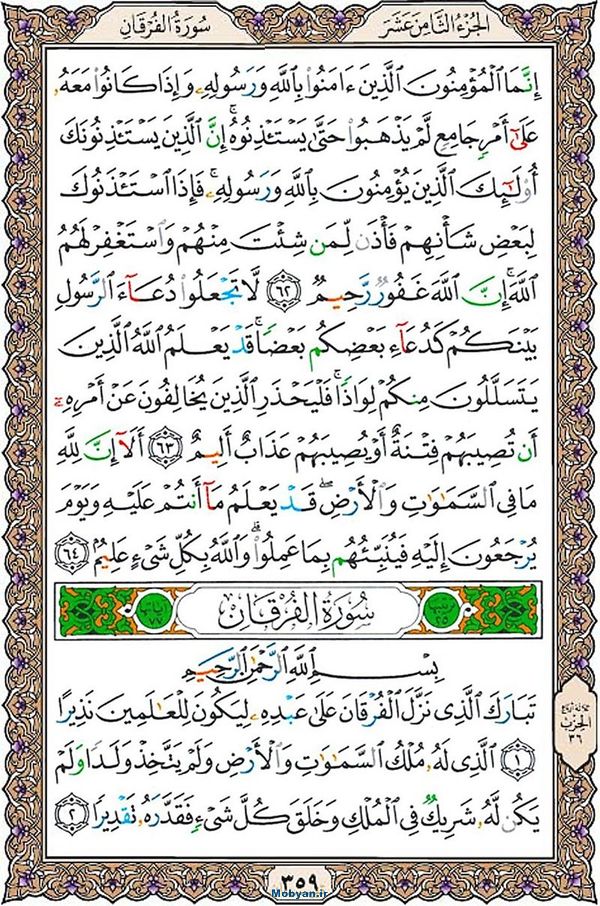 الجزء الثامن عشر
سورة الفرقان
إِنَّمَا ٱلْمُؤْمِنُونَ ٱلَّذِينَ ءَامَنُوا۟ بِٱللَّهِ وَرَسُولِهِۦ وَإِذَا كَانُوا۟ مَعَهُۥ
عَلَىٰٓ أَمْرٍ جَامِعٍ لَّمْ يَذْهَبُوا۟ حَتَّىٰ يَسْتَـْٔذِنُوهُ ۚ إِنَّ ٱلَّذِينَ يَسْتَـْٔذِنُونَكَ
أُو۟لَٰٓئِكَ ٱلَّذِينَ يُؤْمِنُونَ بِٱللَّهِ وَرَسُولِهِۦ ۚ فَإِذَا ٱسْتَـْٔذَنُوكَ
لِبَعْضِ شَأْنِهِمْ فَأْذَن لِّمَن شِئْتَ مِنْهُمْ وَٱسْتَغْفِرْ لَهُمُ
ٱللَّهَ ۚ إِنَّ ٱللَّهَ غَفُورٌ رَّحِيمٌ ٦٢ لَّا تَجْعَلُوا۟ دُعَآءَ ٱلرَّسُولِ
بَيْنَكُمْ كَدُعَآءِ بَعْضِكُم بَعْضًا ۚ قَدْ يَعْلَمُ ٱللَّهُ ٱلَّذِينَ
يَتَسَلَّلُونَ مِنكُمْ لِوَاذًا ۚ فَلْيَحْذَرِ ٱلَّذِينَ يُخَالِفُونَ عَنْ أَمْرِهِۦٓ
أَن تُصِيبَهُمْ فِتْنَةٌ أَوْ يُصِيبَهُمْ عَذَابٌ أَلِيمٌ ٦٣ أَلَآ إِنَّ لِلَّهِ
مَا فِى ٱلسَّمَٰوَٰتِ وَٱلْأَرْضِ ۖ قَدْ يَعْلَمُ مَآ أَنتُمْ عَلَيْهِ وَيَوْمَ
يُرْجَعُونَ إِلَيْهِ فَيُنَبِّئُهُم بِمَا عَمِلُوا۟ ۗ وَٱللَّهُ بِكُلِّ شَىْءٍ عَلِيمٌ ٦٤
سُورَةُ الفُرْقَان
بِسْمِ ٱللَّهِ ٱلرَّحْمَٰنِ ٱلرَّحِيمِ
تَبَارَكَ ٱلَّذِى نَزَّلَ ٱلْفُرْقَانَ عَلَىٰ عَبْدِهِۦ لِيَكُونَ لِلْعَٰلَمِينَ نَذِيرًا
١ ٱلَّذِى لَهُۥ مُلْكُ ٱلسَّمَٰوَٰتِ وَٱلْأَرْضِ وَلَمْ يَتَّخِذْ وَلَدًا وَلَمْ
يَكُن لَّهُۥ شَرِيكٌ فِى ٱلْمُلْكِ وَخَلَقَ كُلَّ شَىْءٍ فَقَدَّرَهُۥ تَقْدِيرًا ٢
الحزب
٣٦
٣٥٩
Mobyan.ir